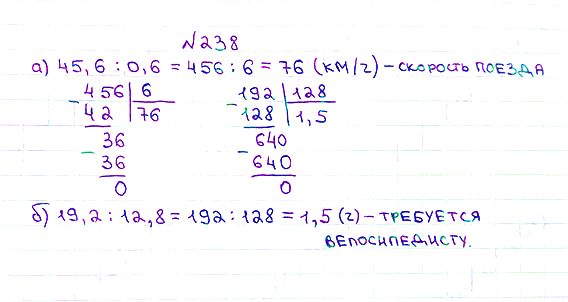 №238
а) 45,6 : 0,6 = 456 : 6 = 76 (км/ч) – скорость поезда
456 | 6
42 | 76
36
36
0
192 | 128
128 | 1,5
640
640
0
б) 19,2 : 12,8 = 192 : 128 = 1,5 (ч) – требуется
велосипедисту.